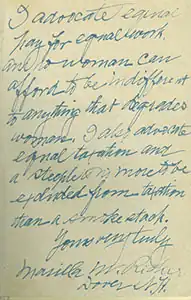 I advocate equal
pay for equal work,
and no woman can
afford to be indifferent
to anything that degrades
woman. I also advocate
equal taxation and
a steeple is no more to be
excluded from taxation
than a smoke stack.
Yours very truly
Marilla M. Ricker
Dover N.H.